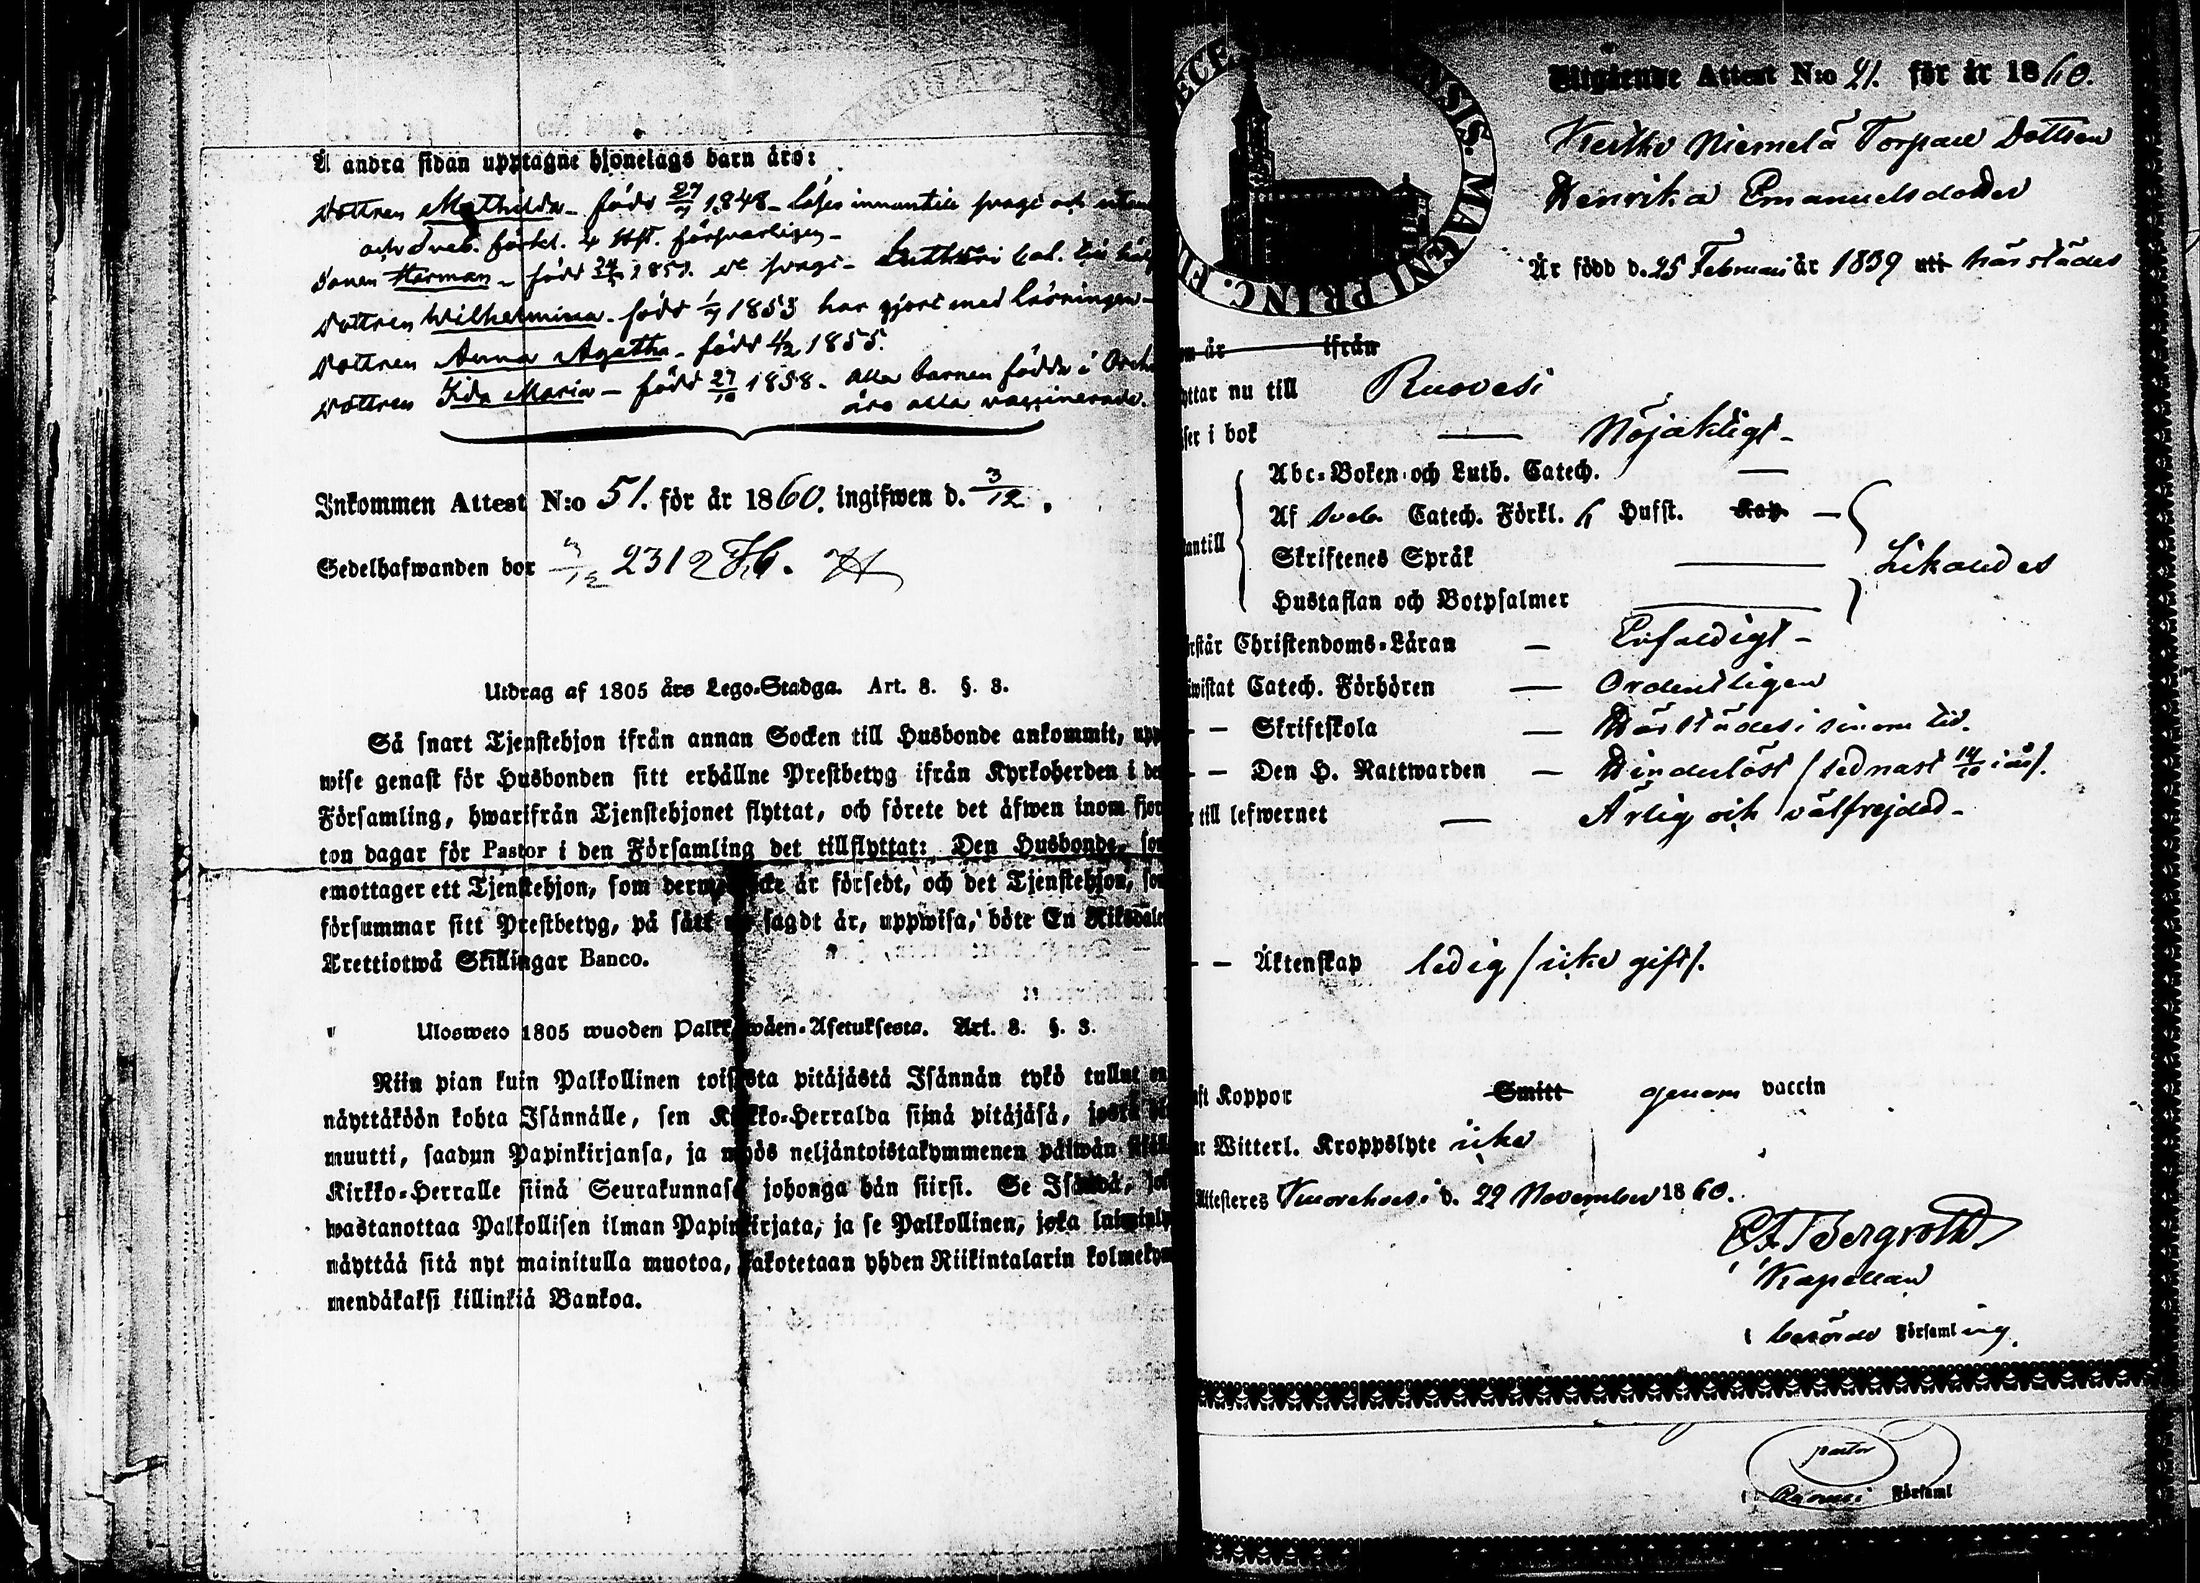 Å andra sidan upptagne hjonelags barn äro:
Dottren Mathilda – född 27/7 1848 – läser innantill svagt och utan
och Sveb. förkl. 4 Hst. försvarligen –
Sonen Herman – född 1851. svagt – Lutheri Cat.
Dottren Wilhelmina – född 1/7 1853 har gjort med läsningen –
Dottren Anna Agatha – född 4/2 1855.
Dottren Ida Maria – född 27/10 1858. alla barnen födde i
äro alla vaccinerade.
Inkommen Attest N:o 51. för år 1860. ingifwen d. 3/12.
Sedelhafwanden bor 3/12 2312
Utdrag af 1805 års Lego-Stadga. Art. 8. §. 3.
Så snart Tjenstehjon ifrån annan Socken till Husbonde ankommit, upp
wise genast för Husbonden sitt erhållne Prestbetyg ifrån Kyrkoherden i den
Församling, hwarifrån Tjenstehjonet flyttat, och förete det äfwen inom fjor
ton dagar för Pastor i den Församling det tillflyttat: Den Husbonde, som
emottager ett Tjenstehjon, som är försedt, och det Tjenstehjon, som
försummar sitt Prestbetyg, på sätt sagdt är, uppwisa, böte En Riksdaler
Trettiotwå Skillingar Banco.
Ulosweto 1805 wuoden Palkkawäen-Asetuksesta. Art. 8. §. 3.
Niin pian kuin Palkollinen toisesta pitäjästä Isännän tykö tullut on
näyttäköön kohta Isännälle, sen Kirkko-Herralda siinä pitäjäsä, josta
muutti, saadun Papinkirjansa, ja myös neljäntoistakymmenen päiwän
Kirkko-Herralle siinä Seurakunnasa johonga hän siirsi. Se Isändä, joka
wastanottaa Palkollisen ilman Papinkirjata, ja se Palkollinen, joka
näyttää sitä nyt mainitulla muotoa, sakotetaan yhden Riikintalarin kolmekym
mendäkaksi killinkiä Bankoa.
ENSIS. MAGNI PRINC. FI
Utgående Attest N:o 21. för år 1860.
Niemelä Torpare Dottren
Henrika Emanuelsdotter
Är född d. 25 Februari år 1839 uti härstädes
om år ifrån
yttar nu till Ruovesi
ser i bok — Nöjaktigt –
Abc-Boken och Luth. Catech. —
Af Sveb. Catech. Förkl. 6 Hufst. Kap –
antill
Skriftenes Språk — Likaledes
Hustaflan och Botpsalmer —
rstår Christendoms-Läran — Enfaldigt –
iwistat Catech. Förhören — Ordentligen
– – Skriftskola — Härstädes i sinom tid.
– – Den H. Nattwarden — Hinderlöst /sednast 14/10 i år/.
till lefwernet — Ärlig och välfrejdad –
– – Äktenskap ledig /icke gift/.
ft Koppor Smitt genom vaccin
Witterl. Kroppslyte icke
Attesteres Kuorehvesi d. 29 November 1860.
Bergroth
Kapellan
i berörde Församl ing.
pastor
i Ruovesi Församl